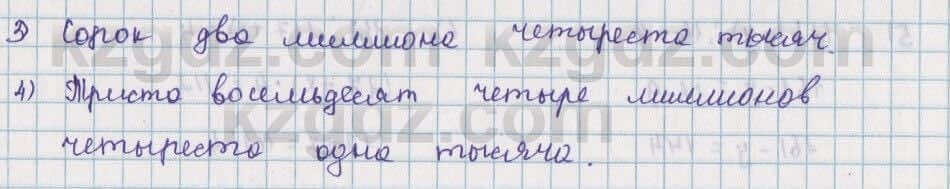 3) Сорок два миллиона четыреста тысяч.
4) Триста восемьдесят четыре миллионов
четыреста одна тысяча.
kzgdz.com
kzgdz.com